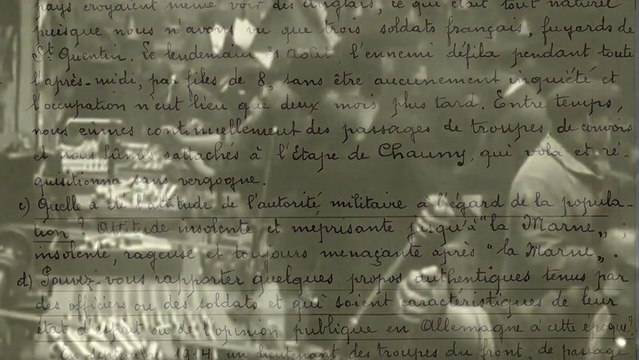 pays croyaient même voir des Anglais, ce que était tout naturel
puisque nous n'avons vu que trois soldats français, fuyards de
St Quentin. Le lendemain 31 Août, l'ennemi défila pendant toute
l'après-midi, par files de 8, sans être aucunement inquiété et
l'occupation n'eut lieu que deux mois plus tard. Entre temps,
nous eûmes continuellement des passages de troupes, de convois
et nous fûmes rattachés à l'Etape de Chauny, qui vola et ré-
quisitionna sans vergogne.
c) Quelle a été l'attitude de l'autorité militaire à l'égard de la popula-
tion? Attitude insolente et méprisante jusqu'à "la Marne";
insolente, rageuse et toujours menaçante après "la Marne".
d) Pouvez-vous rapporter quelques propos authentiques tenus par
des officiers ou des soldats et qui soient caractéristiques de leur
état d'esprit ou de l'opinion publique en Allemagne à cette époque?
En septembre 1914 un lieutenant des troupes du front, de passage